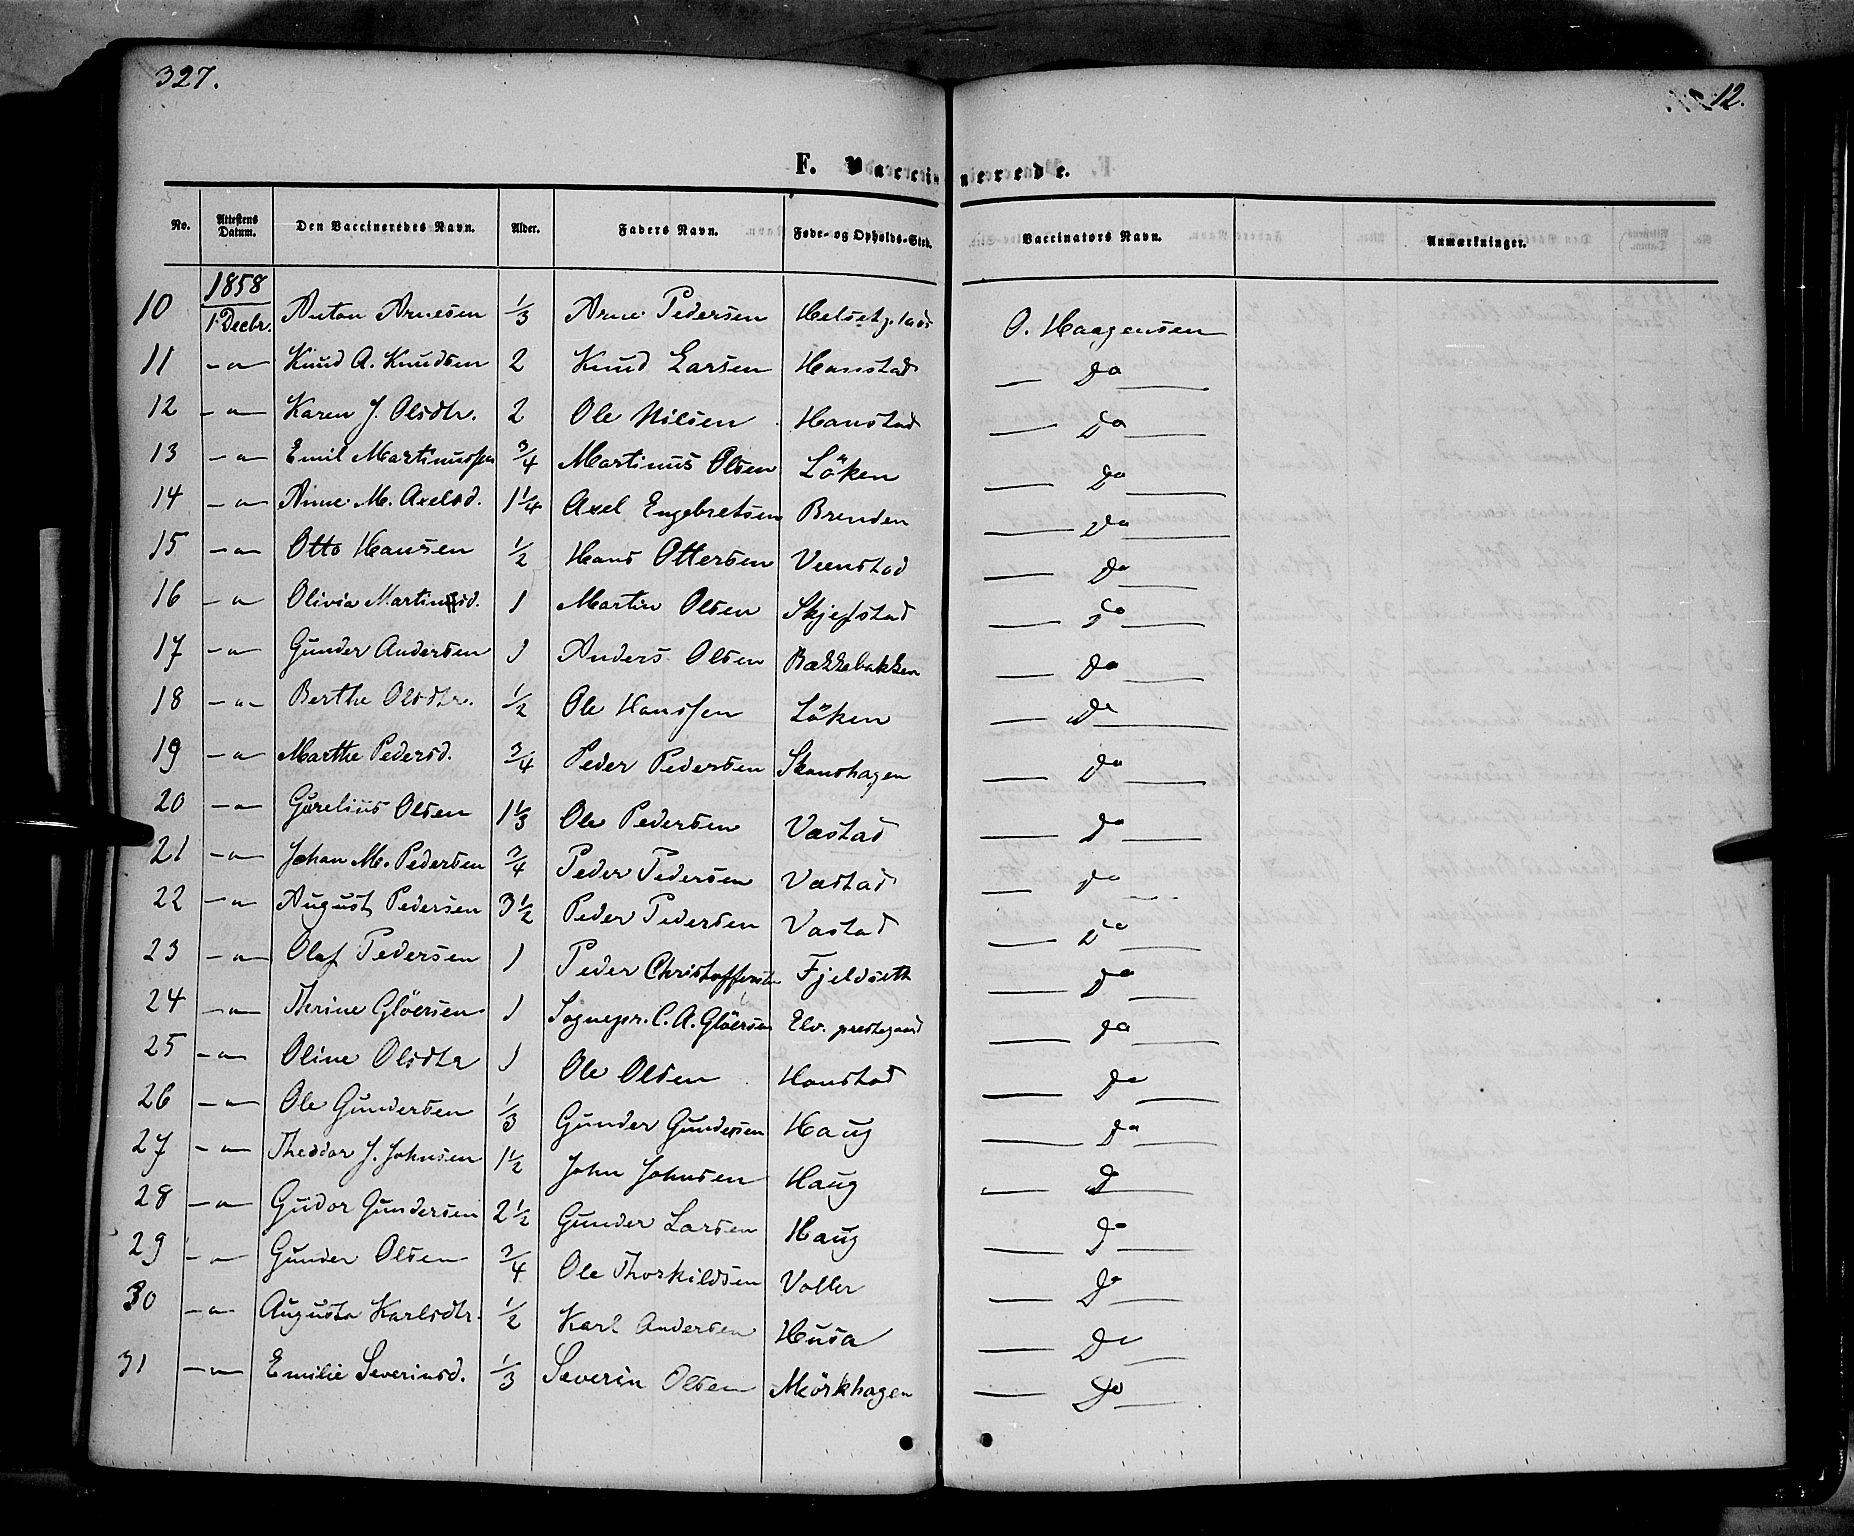 327.
12.
F. Vaccinerede.
No. Attestens Datum. Den Vaccineredes Navn. Alder. Faders Navn. Føde- og Opholds-Sted. Vaccinators Navn. Anmærkninger.
1858
10 1 Decbr. Anton Arnesen 1/3 Arne Pedersen Helsetplads O. Haagensen
11 -"- Knud A. Knudsen 2 Knud Larsen Hanstad — Do —
12 -"- Karen J. Olsdtr. 2 Ole Nilsen Hanstad — Do —
13 -"- Emil Martinussen 3/4 Martinus Olsen Löken — Do —
14 -"- Anne M. Axelsd. 1 1/4 Axel Engebretsen Brenden — Do —
15 -"- Otto Hansen 1/2 Hans Ottersen Veenstad — Do —
16 -"- Olivia Martinsd. 1 Martin Olsen Skjefstad — Do —
17 -"- Gunder Andersen 1 Anders Olsen Bækkebakken — Do —
18 -"- Berthe Olsdtr. 1/2 Ole Hanssen Löken — Do —
19 -"- Marthe Pedersd. 3/4 Peder Pedersen Skanshagen — Do —
20 -"- Gurelius Olsen 1 1/3 Ole Pedersen Væstad — Do —
21 -"- Johan M. Pedersen 3/4 Peder Pedersen Væstad — Do —
22 -"- August Pedersen 3 1/2 Peder Pedersen Væstad — Do —
23 -"- Olaf Pedersen 1 Peder Christoffersen Fjeldseth — Do —
24 -"- Therine Glöersen 1 Sognepr. C. A. Glöersen Elv. prestegaard — Do —
25 -"- Oline Olsdtr 1 Ole Olsen Hanstad — Do —
26 -"- Ole Gundersen 1/3 Gunder Gundersen Haug — Do —
27 -"- Theodor J. Johnsen 1 1/2 John Johnsen Haug — Do —
28 -"- Gudor Gundersen 2 1/2 Gunder Larsen Haug — Do —
29 -"- Gunder Olsen 3/4 Ole Thorkildsen Voller — Do —
30 -"- Augusta Karlsdtr. 1/2 Karl Andersen Husa — Do —
31 -"- Emilie Severinsd. 1/3 Severin Olsen Mörkhagen — Do —